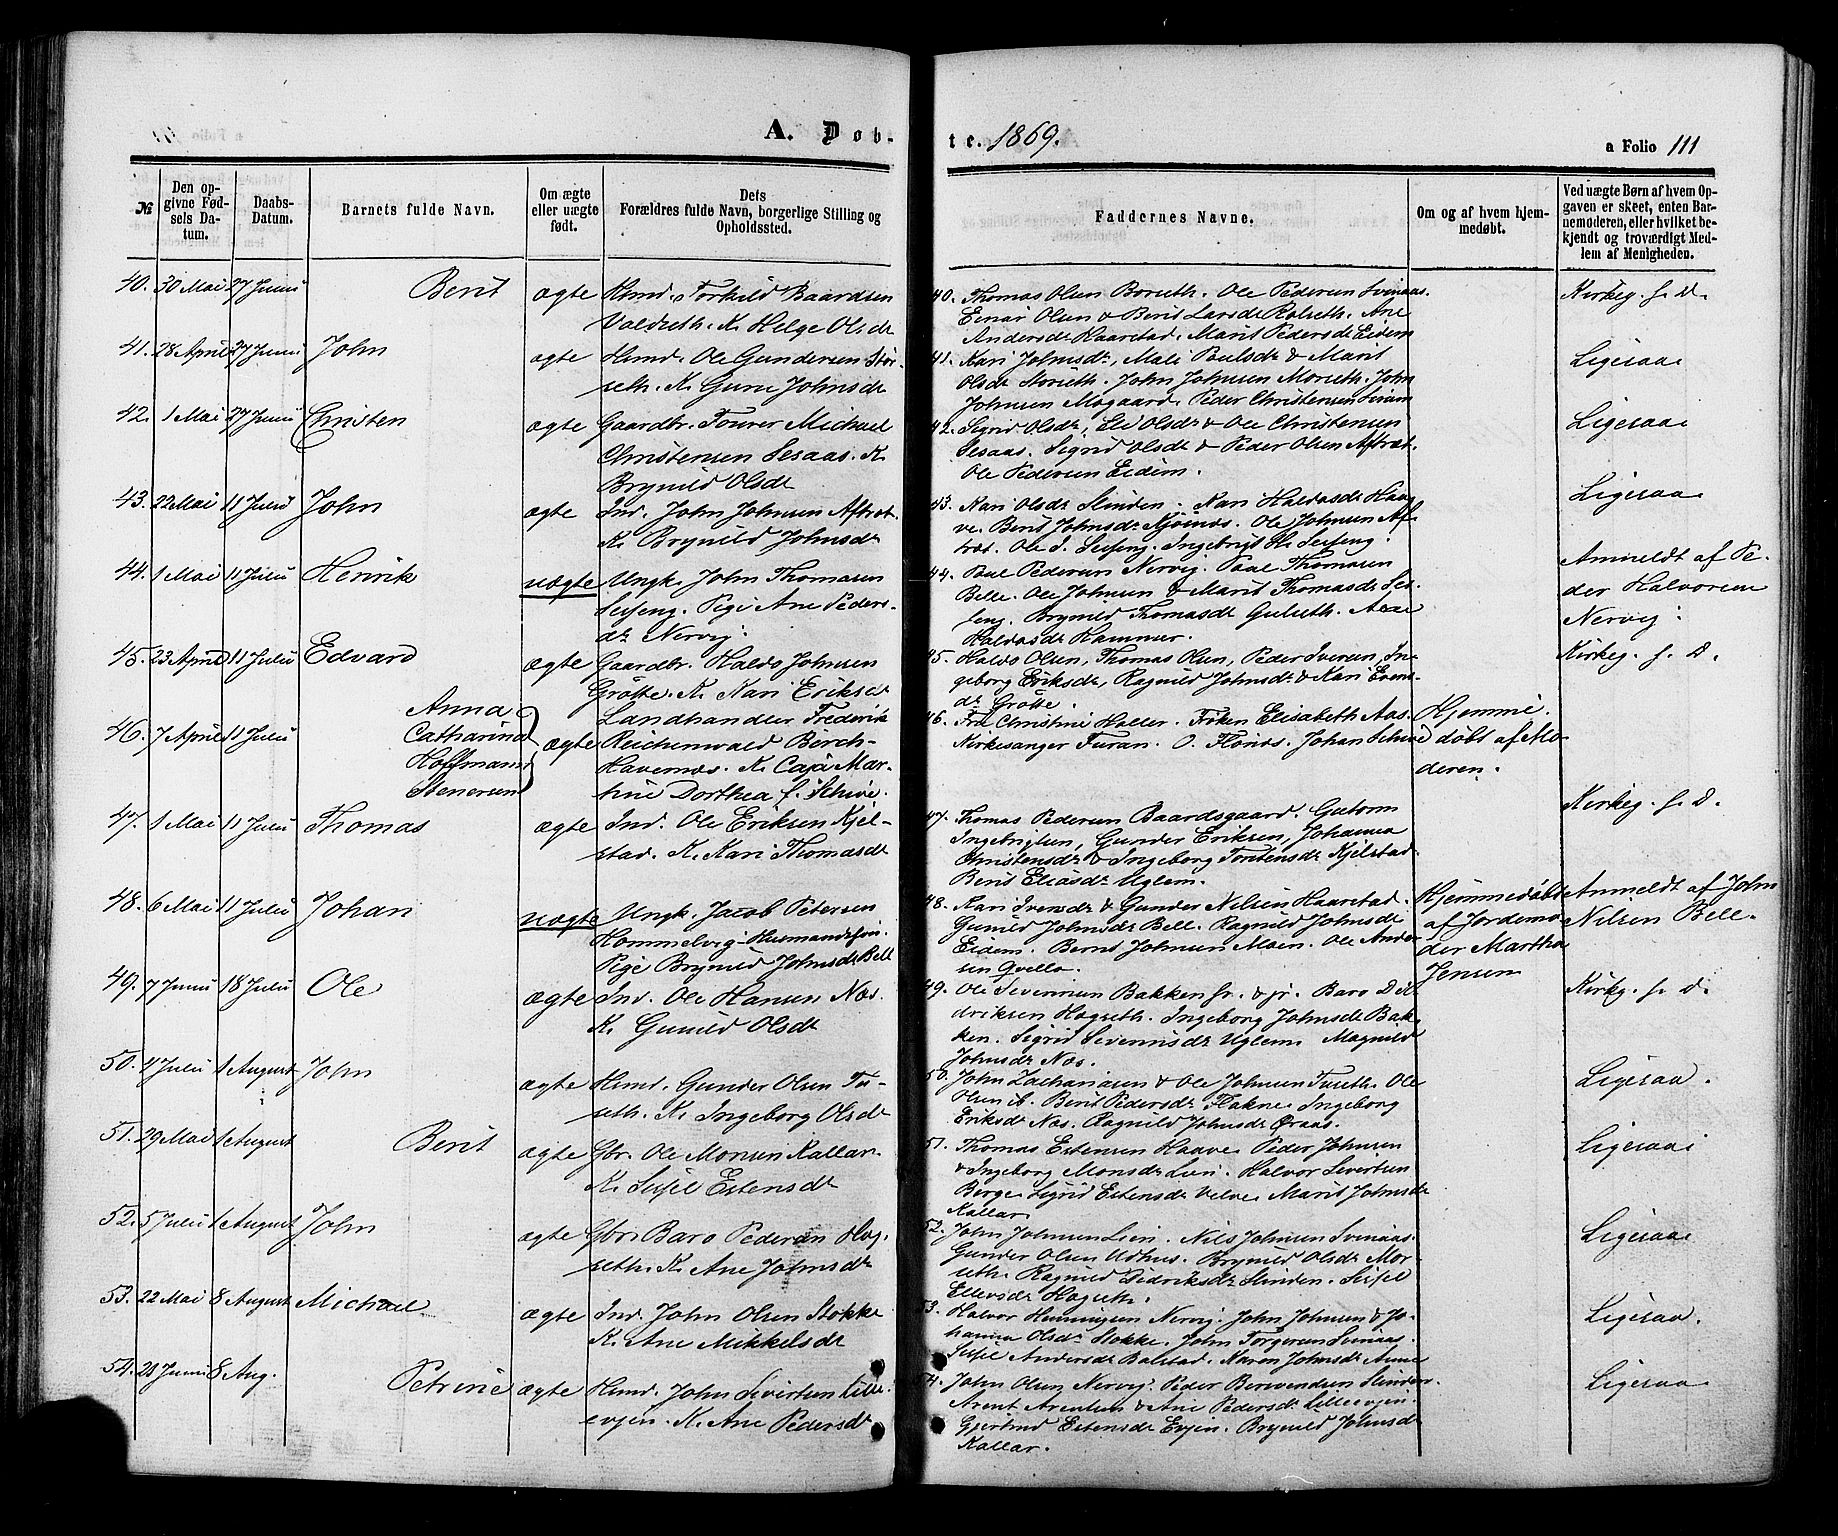 A. Døb-
te. 1869.
a Folio 111
№
Den op-
givne Fød-
sels Da-
tum.
Daabs-
Datum.
Barnets fulde Navn.
Om ægte
eller uægte
født.
Dets
Forældres fulde Navn, borgerlige Stilling og
Opholdssted.
Faddernes Navne.
Om og af hvem hjem-
medøbt.
Ved uægte Børn af hvem Op-
gaven er skeet, enten Bar-
nemoderen, eller hvilket be-
kjendt og troværdigt Med-
lem af Menigheden.
40. 30 Mai 27 Junii Berit ægte Hmd. Torkild Baardsen
Valdseth. K. Helge Olsdr
40. Thomas Olsen Borseth. Ole Pedersen Svinaas.
Einar Olsen & Berit Larsdr Rolseth. Ane
Andersdr Haarstad. Marit Pedersdr Eidem
Kirkeg. s. D.
41. 28 April 27 Junii John ægte Hmd. Ole Gundersen Stor-
seth. K. Guru Johnsdr
41. Kari Johnsdr, Mali Paulsdr & Marit
Olsdr Storseth. John Johnsen Morseth. John
Johnsen Mogaard. Peder Christensen
Ligesaa
42. 1 Mai 27 Junii Christen ægte Gaardbr. Tourer Michael
Christensen Sesaas. K.
Brynild Olsdr
42. Sigrid Olsdr, Eli Olsdr & Ole Christensen
Sesaas. Sigrid Olsdr & Peder Olsen Aftret.
Ole Pedersen Eidem.
Ligesaa
43. 22 Mai 11 Julii John ægte Ind. John Johnsen Aftret.
K. Brynild Johnsdr
43. Kari Olsdr Slinden. Kari Haldosdr Haa-
ve. Berit Johnsdr Kjøsnæs. Ole Johnsen Af-
tret. Ole J. Selseng. Ingebrigt H. Selseng.
Ligesaa
44. 1 Mai 11 Julii Henrik uægte Ungk. John Thomasen
Selseng. Pige Ane Peders-
dr Nervig.
44. Paul Pedersen Nervig. Paul Thomasen
Belle. Ole Johnsen & Marit Thomasdr Sel-
seng. Brynild Thomasdr Gulseth. Ane
Haldosdr Hammer.
Anmeldt af Pe-
der Halvorsen
Nervig.
45. 23 April 11 Julii Edvard ægte Gaardbr. Haldo Johnsen
Grøtte. K. Kari Eriksdr
45. Haldo Olsen, Thomas Olsen, Peder Iversen, In-
geborg Eriksdr, Ragnild Johnsdr & Kari Evens-
dr Grøtte.
Kirkeg. s. D.
46. 7 April 11 Julii Anna
Catharina
Hoffmann
Stenersen
ægte Landhandler Frederik
Reichenwald Borch-
Havernæs. K. Caja Mar-
thine Dorthea f. Schive.
46. Fru Christine Haller. Frøken Elisabeth Aas.
Kirkesanger Furan. O. Flønæs. Johan Schive
Hjemme-
døbt af Mo-
deren.
47. 1 Mai 11 Julii Thomas ægte Ind. Ole Eriksen Kjel-
stad. K. Kari Thomasdr
47. Thomas Pedersen Baardsgaard. Guttorm
Ingebrigtsen, Gunder Eriksen, Johanna
Christensdr & Ingeborg Torstensdr Kjelstad.
Berit Eliasdr Uglem.
Kirkeg. s. D.
48. 6 Mai 11 Julii Johan uægte Ungk. Jacob Petersen
Hommelvig-Husmandssøn.
Pige Brynild Johnsdr Bell
48. Kari Iversdr & Gunder Nilsen Haarstad.
Gunild Johnsdr Bell. Ragnild Johnsdr
Eidem. Bernt Johnsen Moen. Ole Ander-
sen Qvello.
Hjemmedøbt
af Jordemo-
der Martha
Jensen
Anmeldt af John
Nilsen Bell.
49. 7 Junii 18 Julii Ole ægte Ind. Ole Hansen Næs.
K. Gunild Olsdr
49. Ole Severinsen Bakken sr. & jr. Baro Did-
driksen Hogseth. Ingeborg Johnsdr Bak-
ken. Sigrid Severinsdr Uglem. Magnild
Johnsdr Næs.
Kirkg. s. D.
50. 4 Julii 1 August John ægte Hmd. Gunder Olsen Tu-
seth. K. Ingeborg Olsdr
50. John Zachariasen & Ole Johnsen Tuseth. Ole
Olsen ib. Berit Pedersdr Flakne. Ingeborg
Eriksdr Næs. Ragnild Johnsdr Øraas.
Ligesaa.
51. 29 Mai 1 August Berit ægte Gbr. Ole Monsen Kallar.
K. Sissel Estensdr
51. Thomas Estensen Haave. Peder Johnsen
& Ingeborg Monsdr Lien. Halvor Sivertsen
Berge. Sigrid Estensdr Velve. Marit Johnsdr
Kallar.
Ligesaa
52. 5 Julii 1 August John ægte Gbr. Baro Pedersen Hog-
seth. K. Ane Johnsdr
52. John Johnsen Lien. Nils Johnsen Svinaas.
Gunder Olsen Udhus. Brynild Olsdr Mor-
seth. Ragnild Didriksdr Slinden. Sissel
Ellevsdr Hogseth.
Ligesaa
53. 22 Mai 8 August Michael ægte Ind. John Olsen Stokke
K. Ane Mikkelsdr
53. Halvor Henningsen Nervig. John Johnsen & Jo-
hanna Olsdr Stokke. John Torgersen Svinaas.
Sissel Andersdr Balstad. Karen Johnsdr Aune
Ligesaa.
54. 20 Junii 8 Aug. Petrine ægte Hmd. John Sivertsen Lille-
evjen. K. Ane Pedersdr
54. John Olsen Nervig. Peder Berendsen Slinden.
Arent Arentsen & Ane Pedersdr Lilleevjen.
Gjertrud Estensdr Evjen. Brynild Johnsdr
Kallar.
Ligesaa